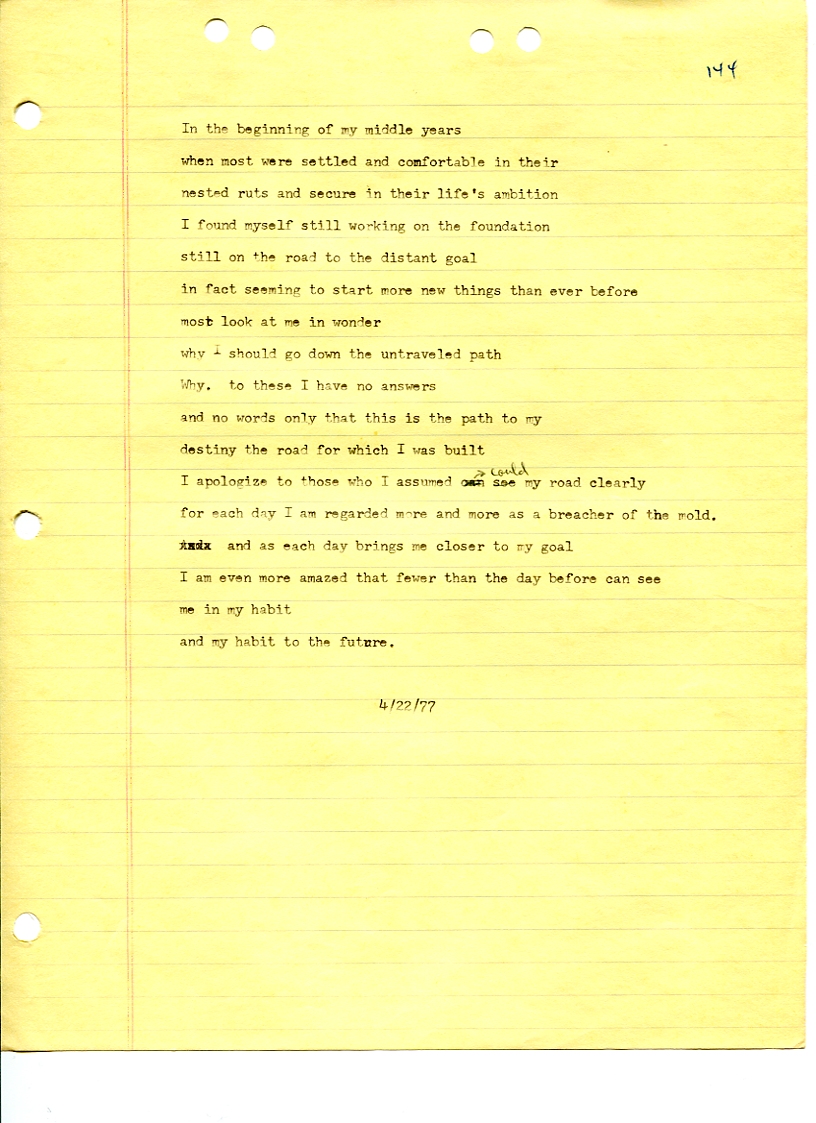 144
In the beginning of my middle years
when most were settled and comfortable in their
nested ruts and secure in their life's ambition
I found myself still working on the foundation
still on the road to the distant goal
in fact seeming to start more new things than ever before
most look at me in wonder
why I should go down the untraveled path
Why.  to these I have no answers
and no words only that this is the path to my
destiny the road for which I was built
could
I apologize to those who I assumed can see my road clearly
for each day I am regarded more and more as a breacher of the mold.
and as each day brings me closer to my goal
I am even more amazed that fewer than the day before can see
me in my habit
and my habit to the future.
4/22/77